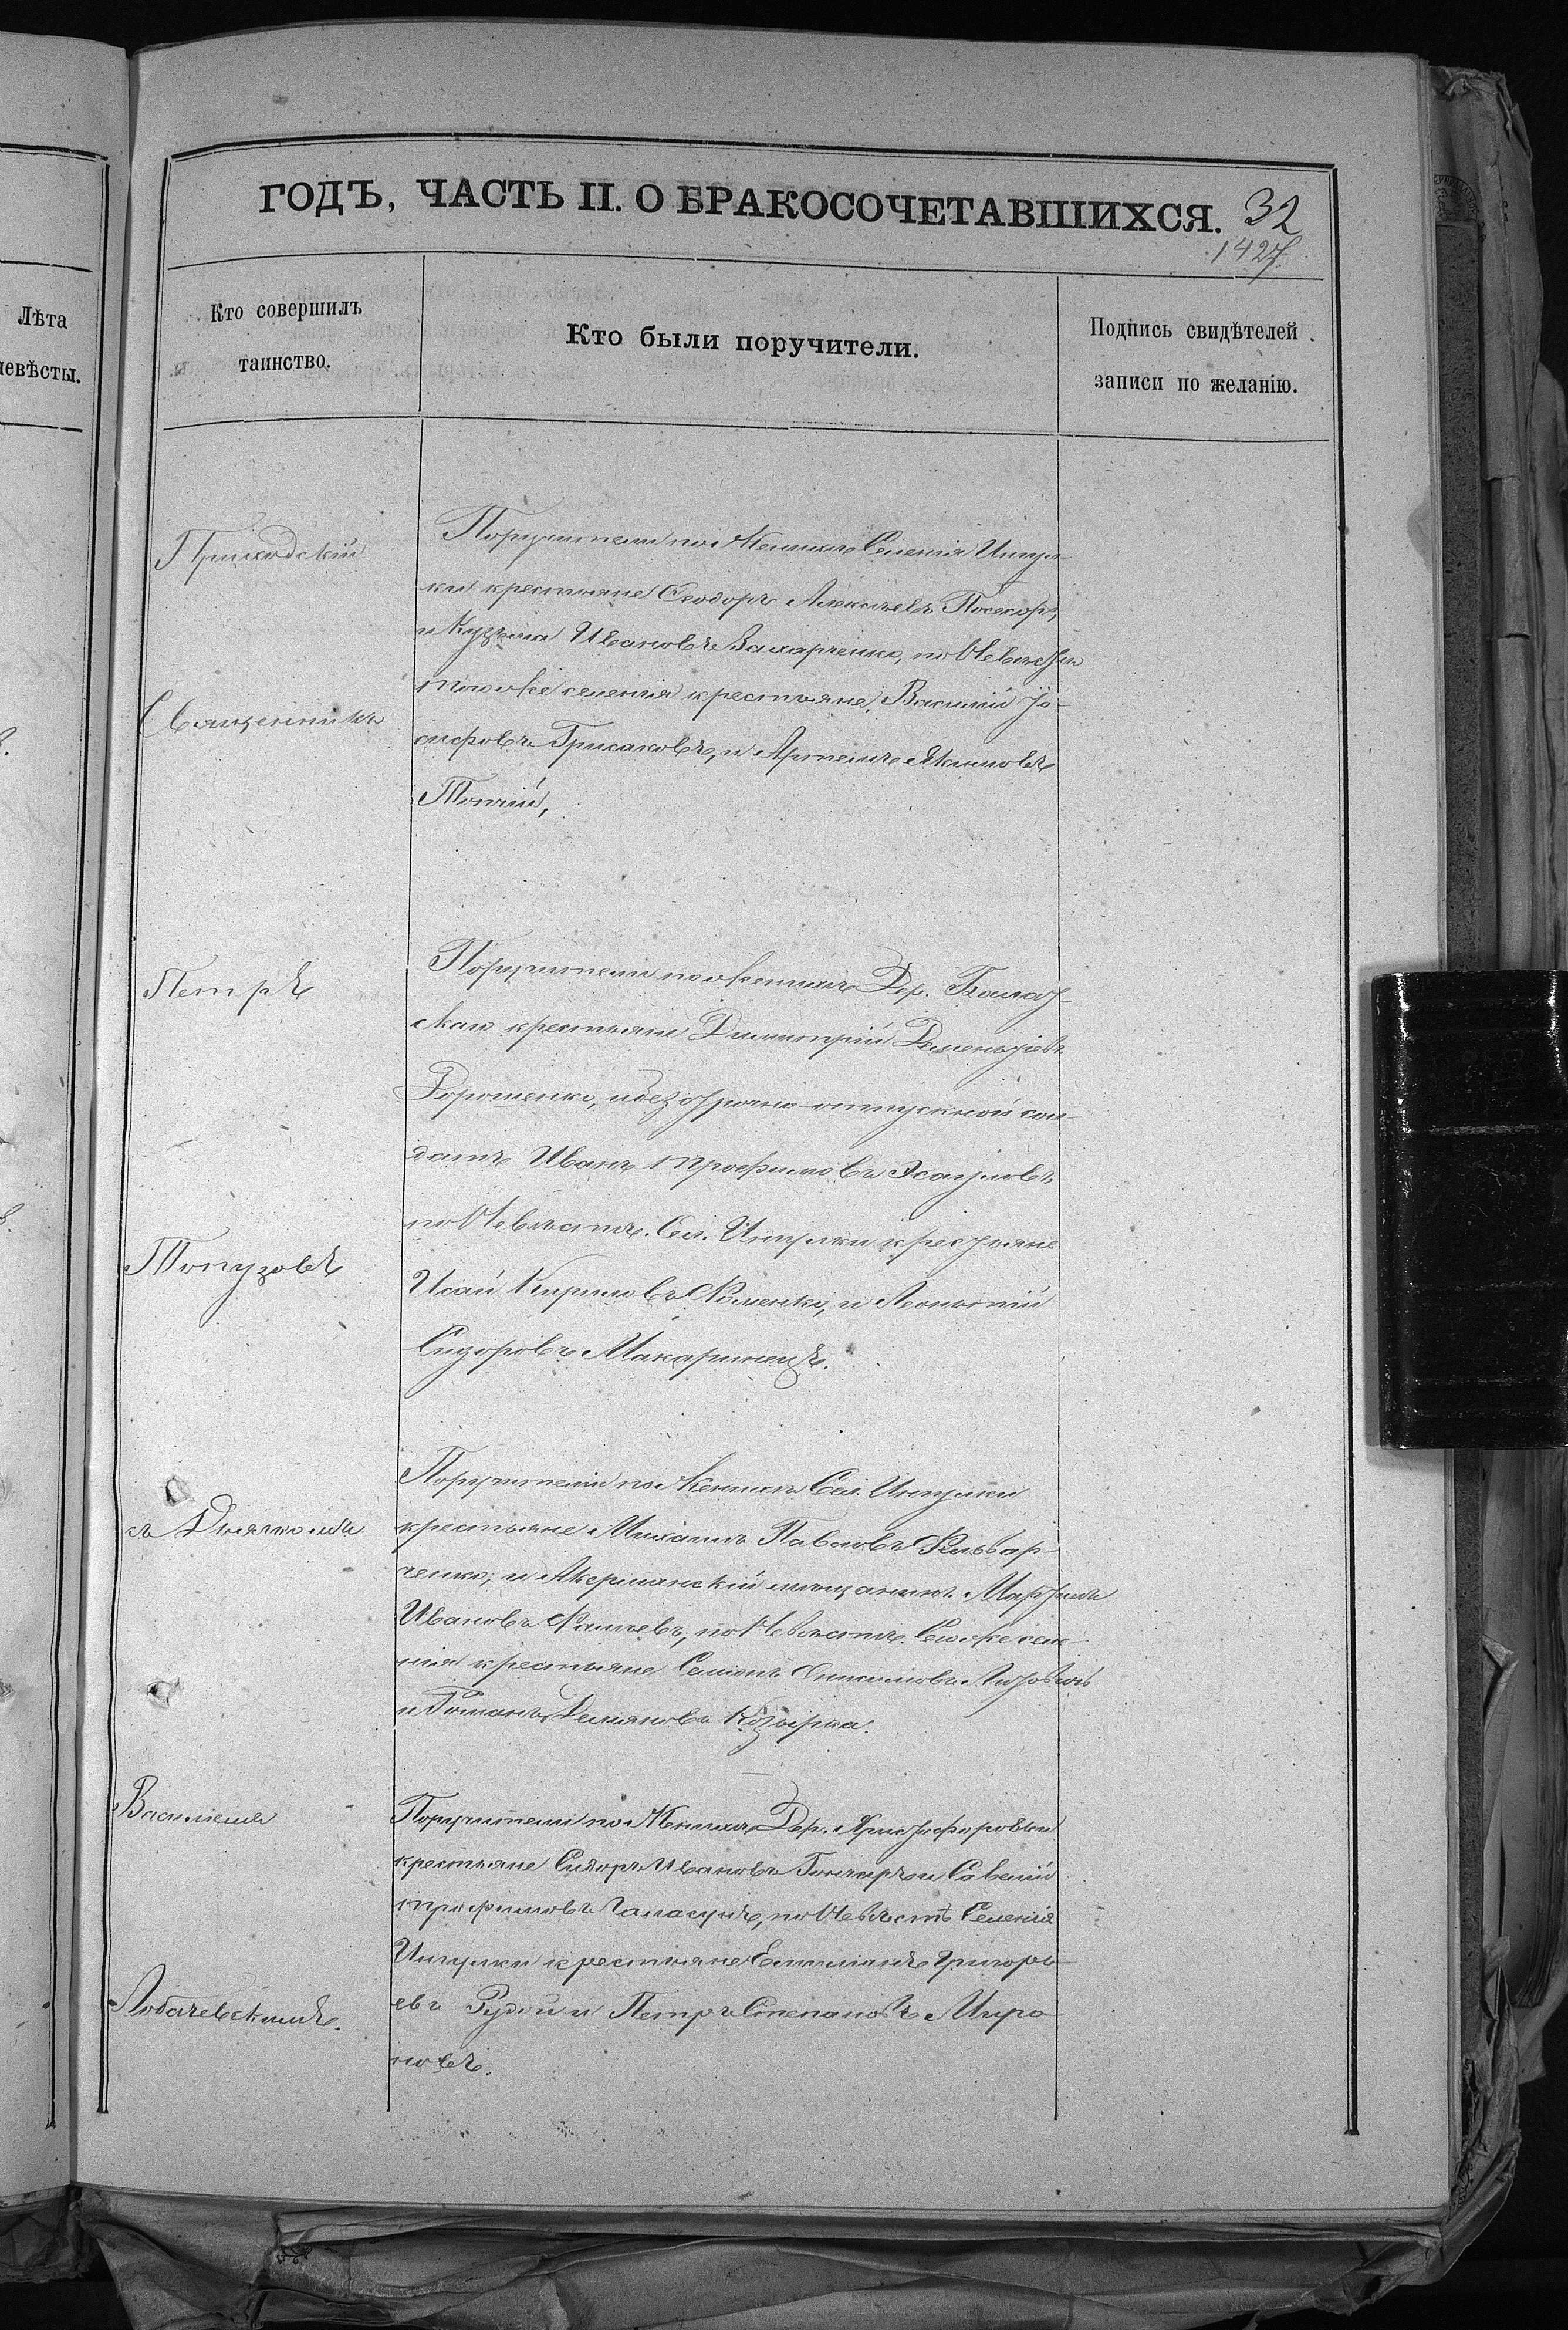 ГОДЪ, ЧАСТЬ II. О БРАКОСОЧЕТАВШИХСЯ. 32
1427
Лѣта
невѣсты.
Кто совершилъ
таинство.
Кто были поручители.
Подпись свидѣтелей
записи по желанію.
Приходскій
Священникъ
Петръ
Топузовъ
съ Дьячкомъ
Василіемъ
Лобачевскимъ.
Поручители по Женихѣ Селенія Ингул-
ки крестьяне Ѳеодоръ Алексѣевъ
и Кузьма Ивановъ Захарченко, по Невѣстѣ
тогоже селенія крестьяне, Василій Іо-
сифовъ Грисаковъ, и Артемъ Якимовъ
Топчій,
Поручители по женихѣ Дер.
крестьяне Димитрій Дементіевъ
Дорошенко, и безсрочно-отпускной сол-
датъ Иванъ Трофимовъ Эсауловъ
по Невѣстѣ. Сел. Ингулки крестьяне
Исай Кириловъ и Леонтій
Сидоровъ Макаринецъ.
Поручители по Женихѣ Сел. Ингулки
крестьяне Михаилъ Павловъ
ченко; и Акерманскій мѣщанинъ
Ивановъ по Невѣстѣ. селе-
нія крестьяне Семенъ
и Романъ Демяновъ Козырка.
Поручители по Женихѣ Дер. Христофоровки
крестьяне Сидоръ Ивановъ Гончаръ и Савелій
Трофимовъ Галагунъ, по Невѣстѣ Селенія
Ингулки крестьяне Емиліанъ Григорь-
евъ Рудой и Петръ Степановъ Миро-
новъ.